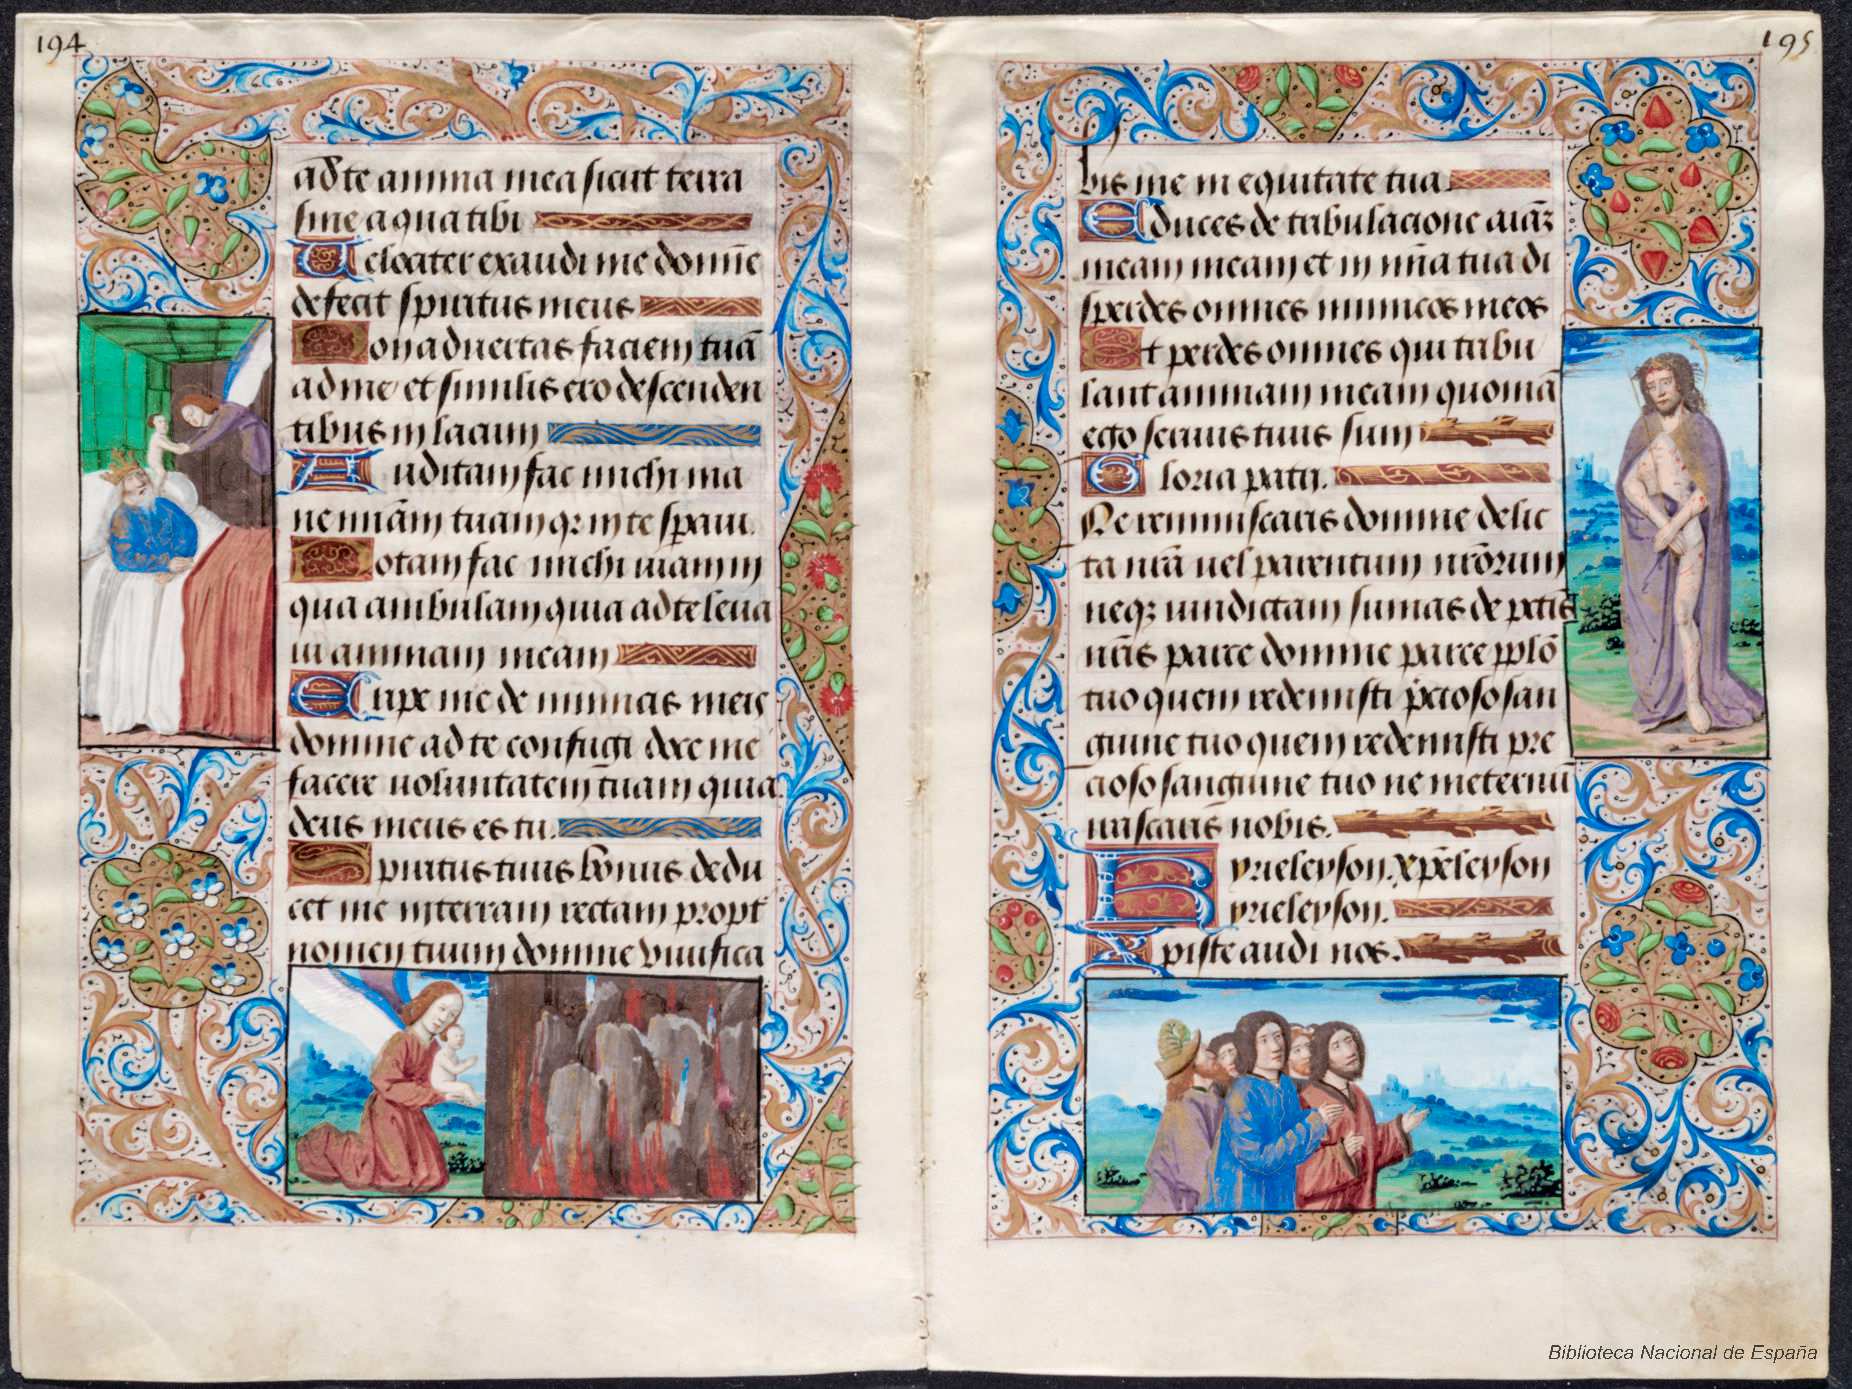 194
ad te anima mea sicut terra
sine aqua tibi
Velociter exaudi me domĩe
defecit spiritus meus
Non aduertas faciem tuã
ad me et similis ero descenden
tibus in lacum
Auditam fac michi ma
ne miãm tuam qz in te speraui.
Notam fac michi uiam in
qua ambulam quia ad te leua
ui animam meam
Eripe me de inimicis meis
domine ad te confugi doce me
facere uoluntatem tuam quia
deus meus es tu.
Spiritus tuus bonus dedu
cet me in terram rectam propt̃
nomen tuum domine viuifica
195
bis me in equitate tua.
Educes de tribulacione aiãz
meam meam et in miã tua di
sperdes omnes inimicos meos
Et perdes omnes qui tribu
lant animam meam quoniã
ego seruus tuus sum
Gloria patri.
Ne reminiscaris domine delic
ta nrã uel parentum nrõrum
neqz uindictam sumas de pctis
nris parce domine parce pplõ
tuo quem redemisti p̃cioso san
guine tuo quem redemisti pre
cioso sanguine tuo ne in eternũ
irascaris nobis.
Kyrieleyson. xp̃eleyson
kyrieleyson.
Xpiste audi nos.
Biblioteca Nacional de España